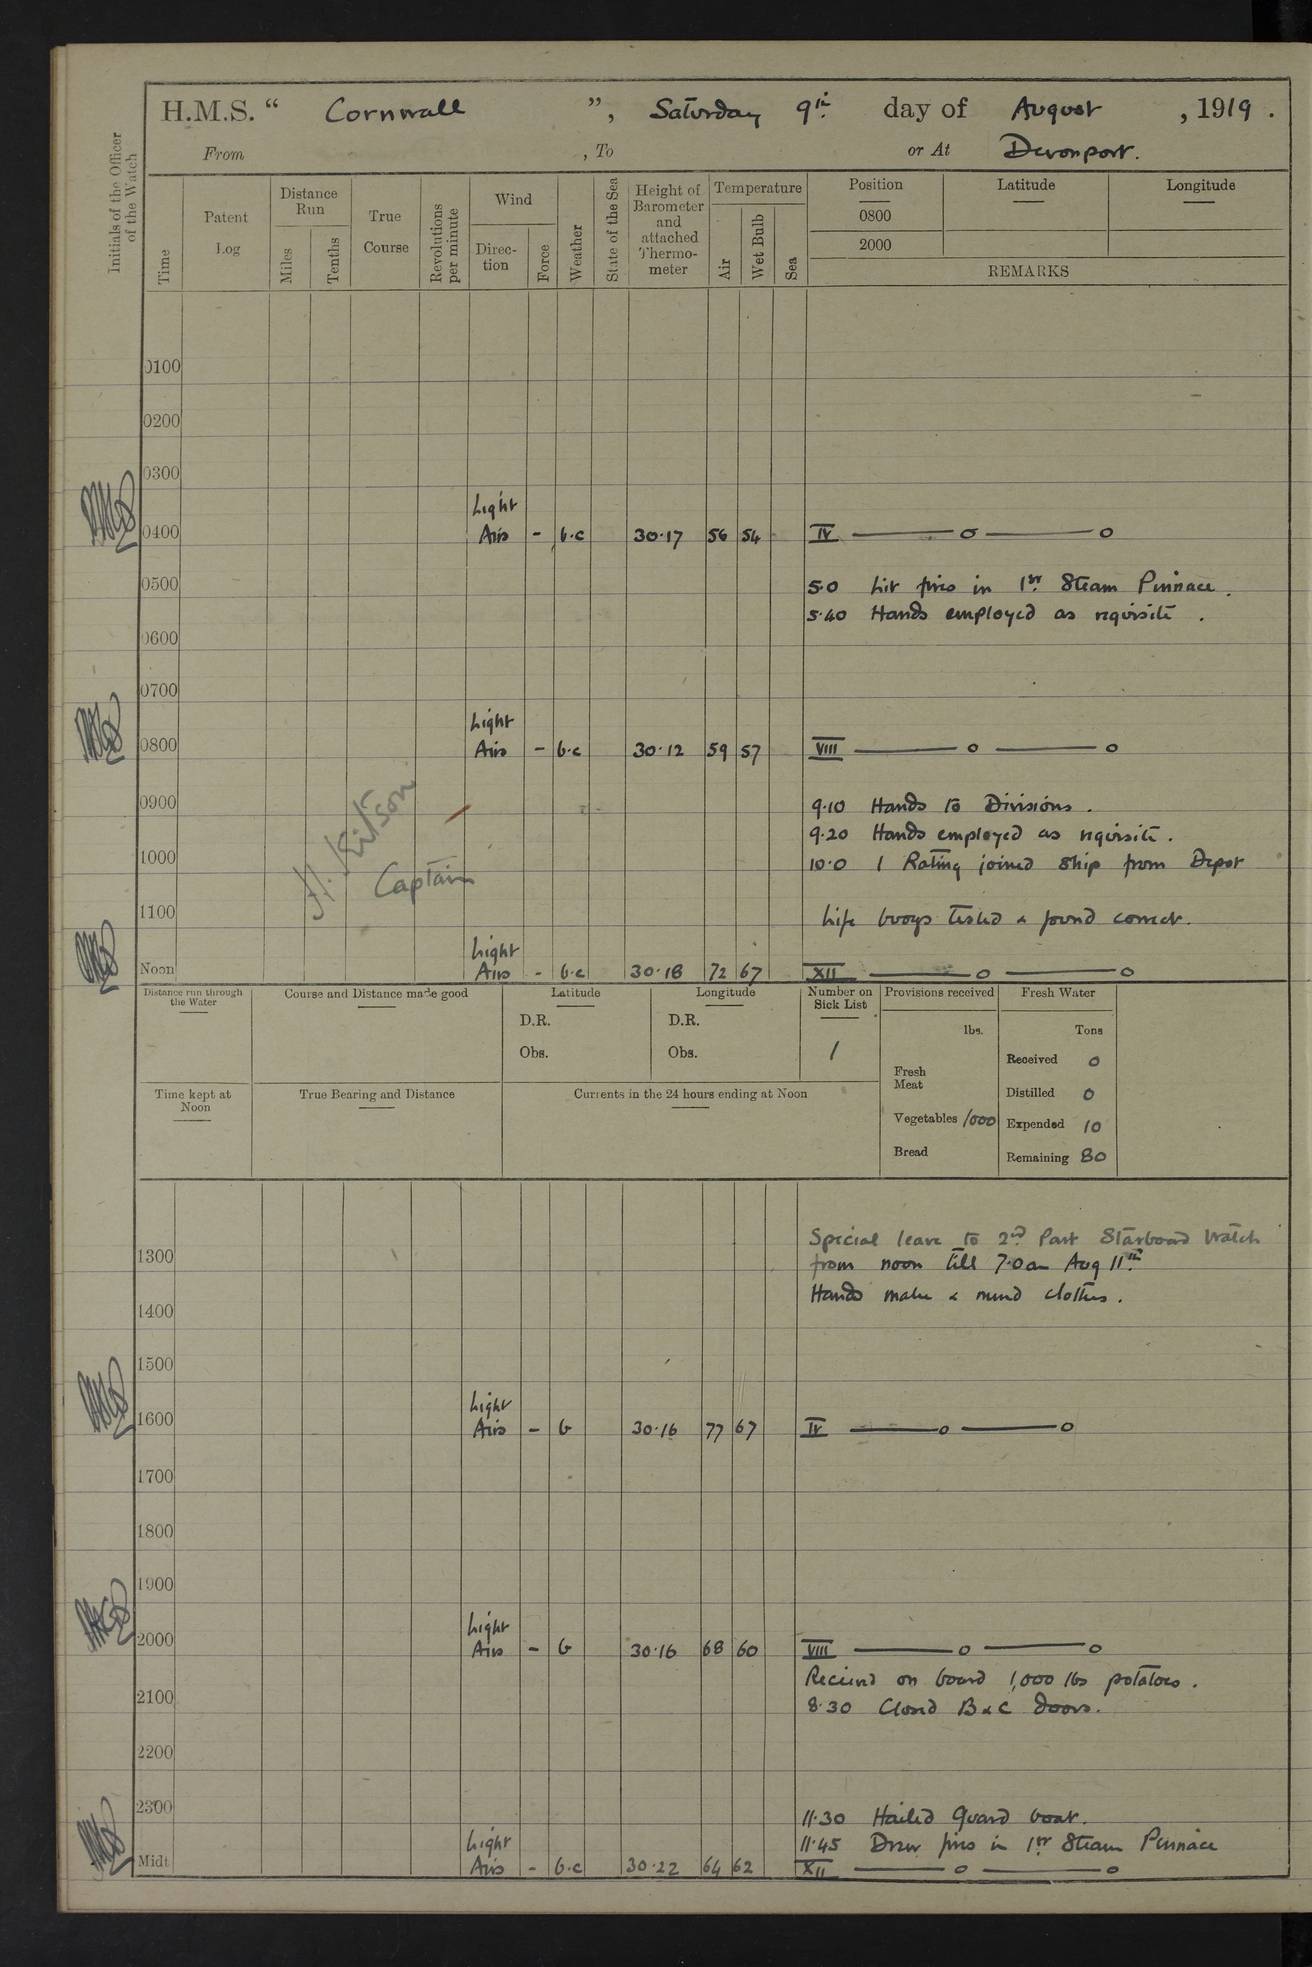 H.M.S. “ Cornwall ”, Saturday 9th day of August , 1919 .
From , To or At Devonport.
Initials of the Officer of the Watch
Time
Patent Log
Distance Run
Miles
Tenths
True Course
Revolutions per minute
Wind
Direc-tion
Force
Weather
State of the Sea
Height of Barometer and attached Thermo-meter
Temperature
Air
Wet Bulb
Sea
Position Latitude Longitude
0800
2000
REMARKS
0100
0200
0300
Light
0400 Airs - b.c 30.17 56 54 IV ——o——o
0500 5.0 Lit fires in 1st Steam Pinnace.
5.40 Hands employed as requisite.
0600
0700
Light
0800 Airs - b.c 30.12 59 57 VIII ——o——o
0900 9.10 Hands to Divisions.
9.20 Hands employed as requisite.
1000 10.0 1 Rating joined ship from Depot
H. Kitson
Captain
1100 Life buoys tested & found correct.
Light
Noon Airs - b.c 30.18 72 67 XII ——o——o
Distance run through the Water
Course and Distance made good
Latitude
Longitude
Number on Sick List
Provisions received
Fresh Water
D.R. D.R.
lbs. Tons
Obs. Obs. 1
Received 0
Fresh Meat
Distilled 0
Time kept at Noon
True Bearing and Distance
Currents in the 24 hours ending at Noon
Vegetables 1000
Expended 10
Bread
Remaining 80
Special leave to 2nd Part Starboard Watch
1300 from noon till 7.0am Aug 11th
Hands make & mend clothes.
1400
1500
Light
1600 Airs - b 30.16 77 67 IV ——o——o
1700
1800
1900
Light
2000 Airs - b 30.16 68 60 VIII ——o——o
Received on board 1,000 lbs potatoes.
2100 8.30 Closed B & C doors.
2200
2300 11.30 Hailed Guard boat.
Light 11.45 Drew fires in 1st Steam Pinnace
Midt Airs - b.c 30.22 64 62 XII ——o——o